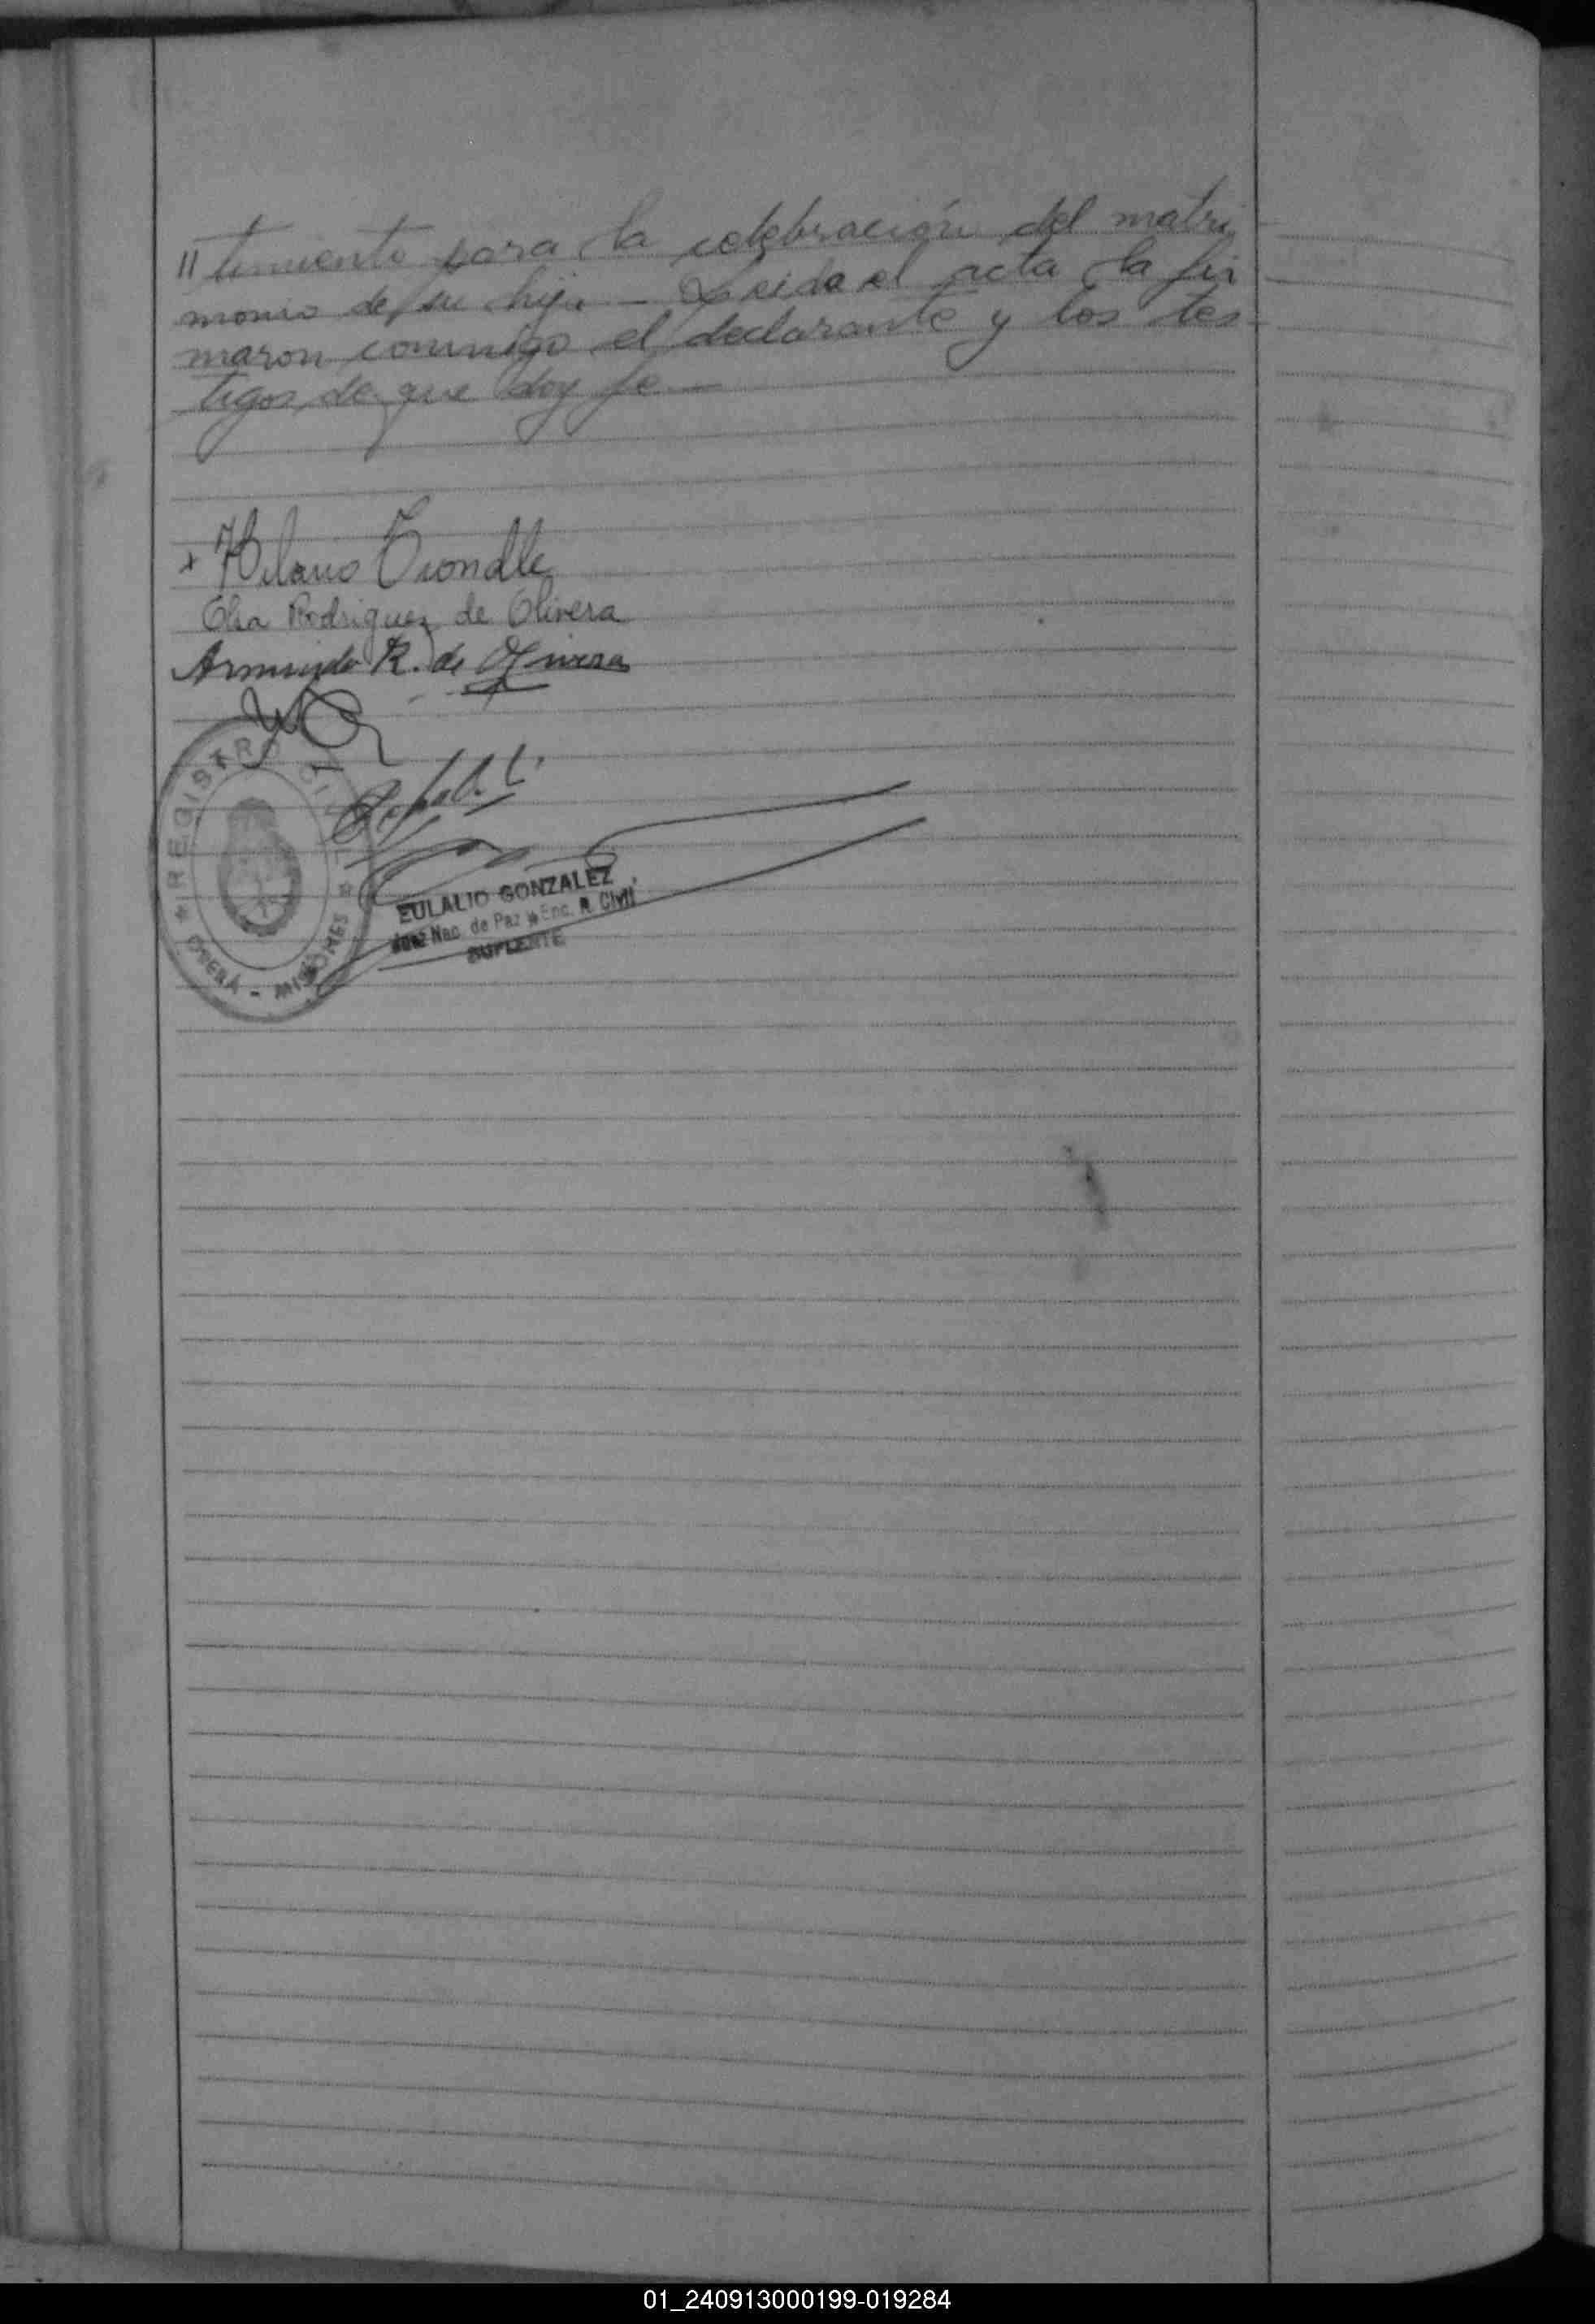 // timiento para la celebración del matri
monio de su hija — Leida el acta la fir
maron conmigo el declarante y los tes
tigos de que doy fe —
x Hilario Trondle
Elsa Rodriguez de Olivera
Armindo R. de Olivera
REGISTRO CIVIL
OBERÁ - MISIONES
EULALIO GONZALEZ
Juez Nac. de Paz y Enc. R. Civil
SUPLENTE
01_240913000199-019284